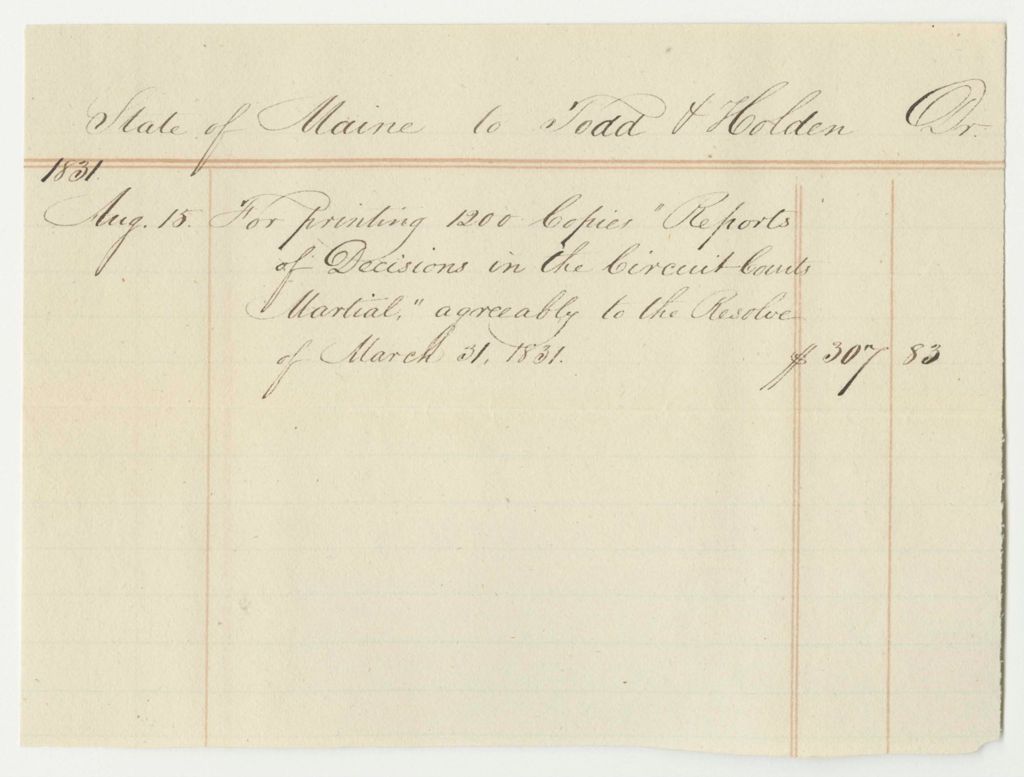 State of Maine to Todd & Holden Dr.
1831.
Aug. 15. For printing 1200 Copies "Reports
of Decisions in the Circuit Courts
Martial," agreeably to the Resolve
of March 31, 1831. $ 307 83